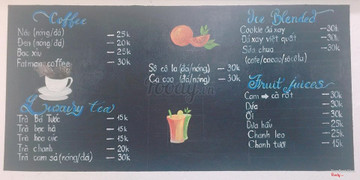 Coffee
Nâu (nóng/đá) — 25k
Đen (nóng/đá) — 20k
Bạc xỉu — 25k
Fatman coffee — 30k
Luxury tea
Trà Bá Tước — 15k
Trà bạc hà — 15k
Trà hoa cúc — 15k
Trà chanh — 20k
Trà cam sả (nóng/đá) — 30k
Sô cô la (đá/nóng) — 30k
Ca cao (đá/nóng) — 30k
foody.vn
Ice Blended
Cookie đá xay — 30k
Đá xay việt quất — 30k
Sữa chua — 30k
(cafe/cacao/
Fruit Juices
Cam → cà rốt — 30k
Dứa — 30k
Ổi — 30k
Dưa hấu — 25k
Chanh leo — 25k
Chanh tươi — 15k